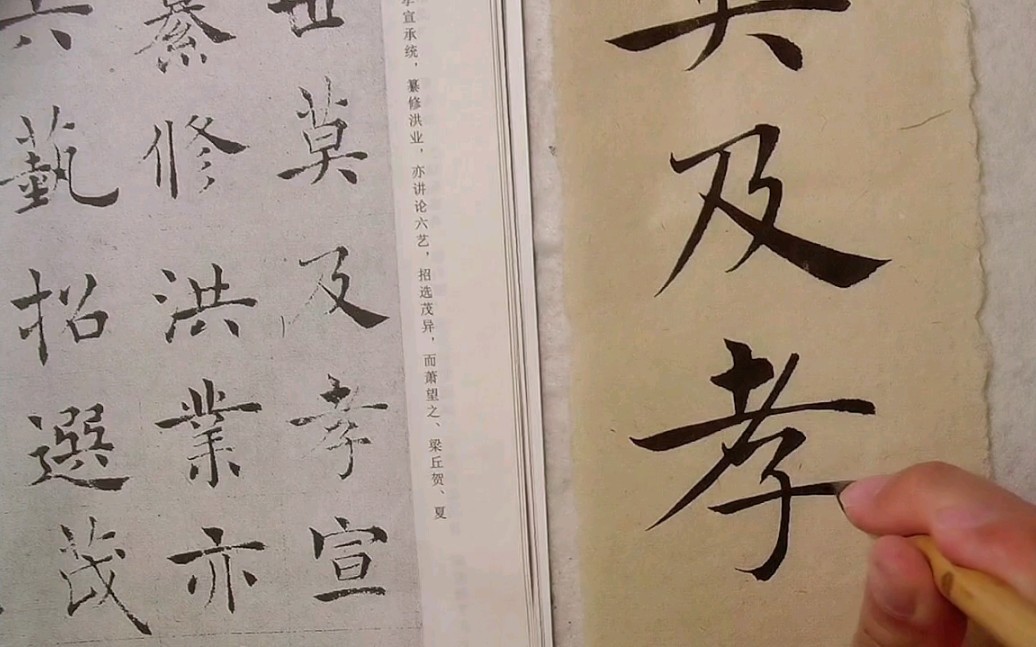 莫及孝
孝宣承统，纂修洪业，亦讲论六艺，招选茂异，而萧望之、梁丘贺、夏
世莫及孝宣
纂修洪業亦
六藝招選茂